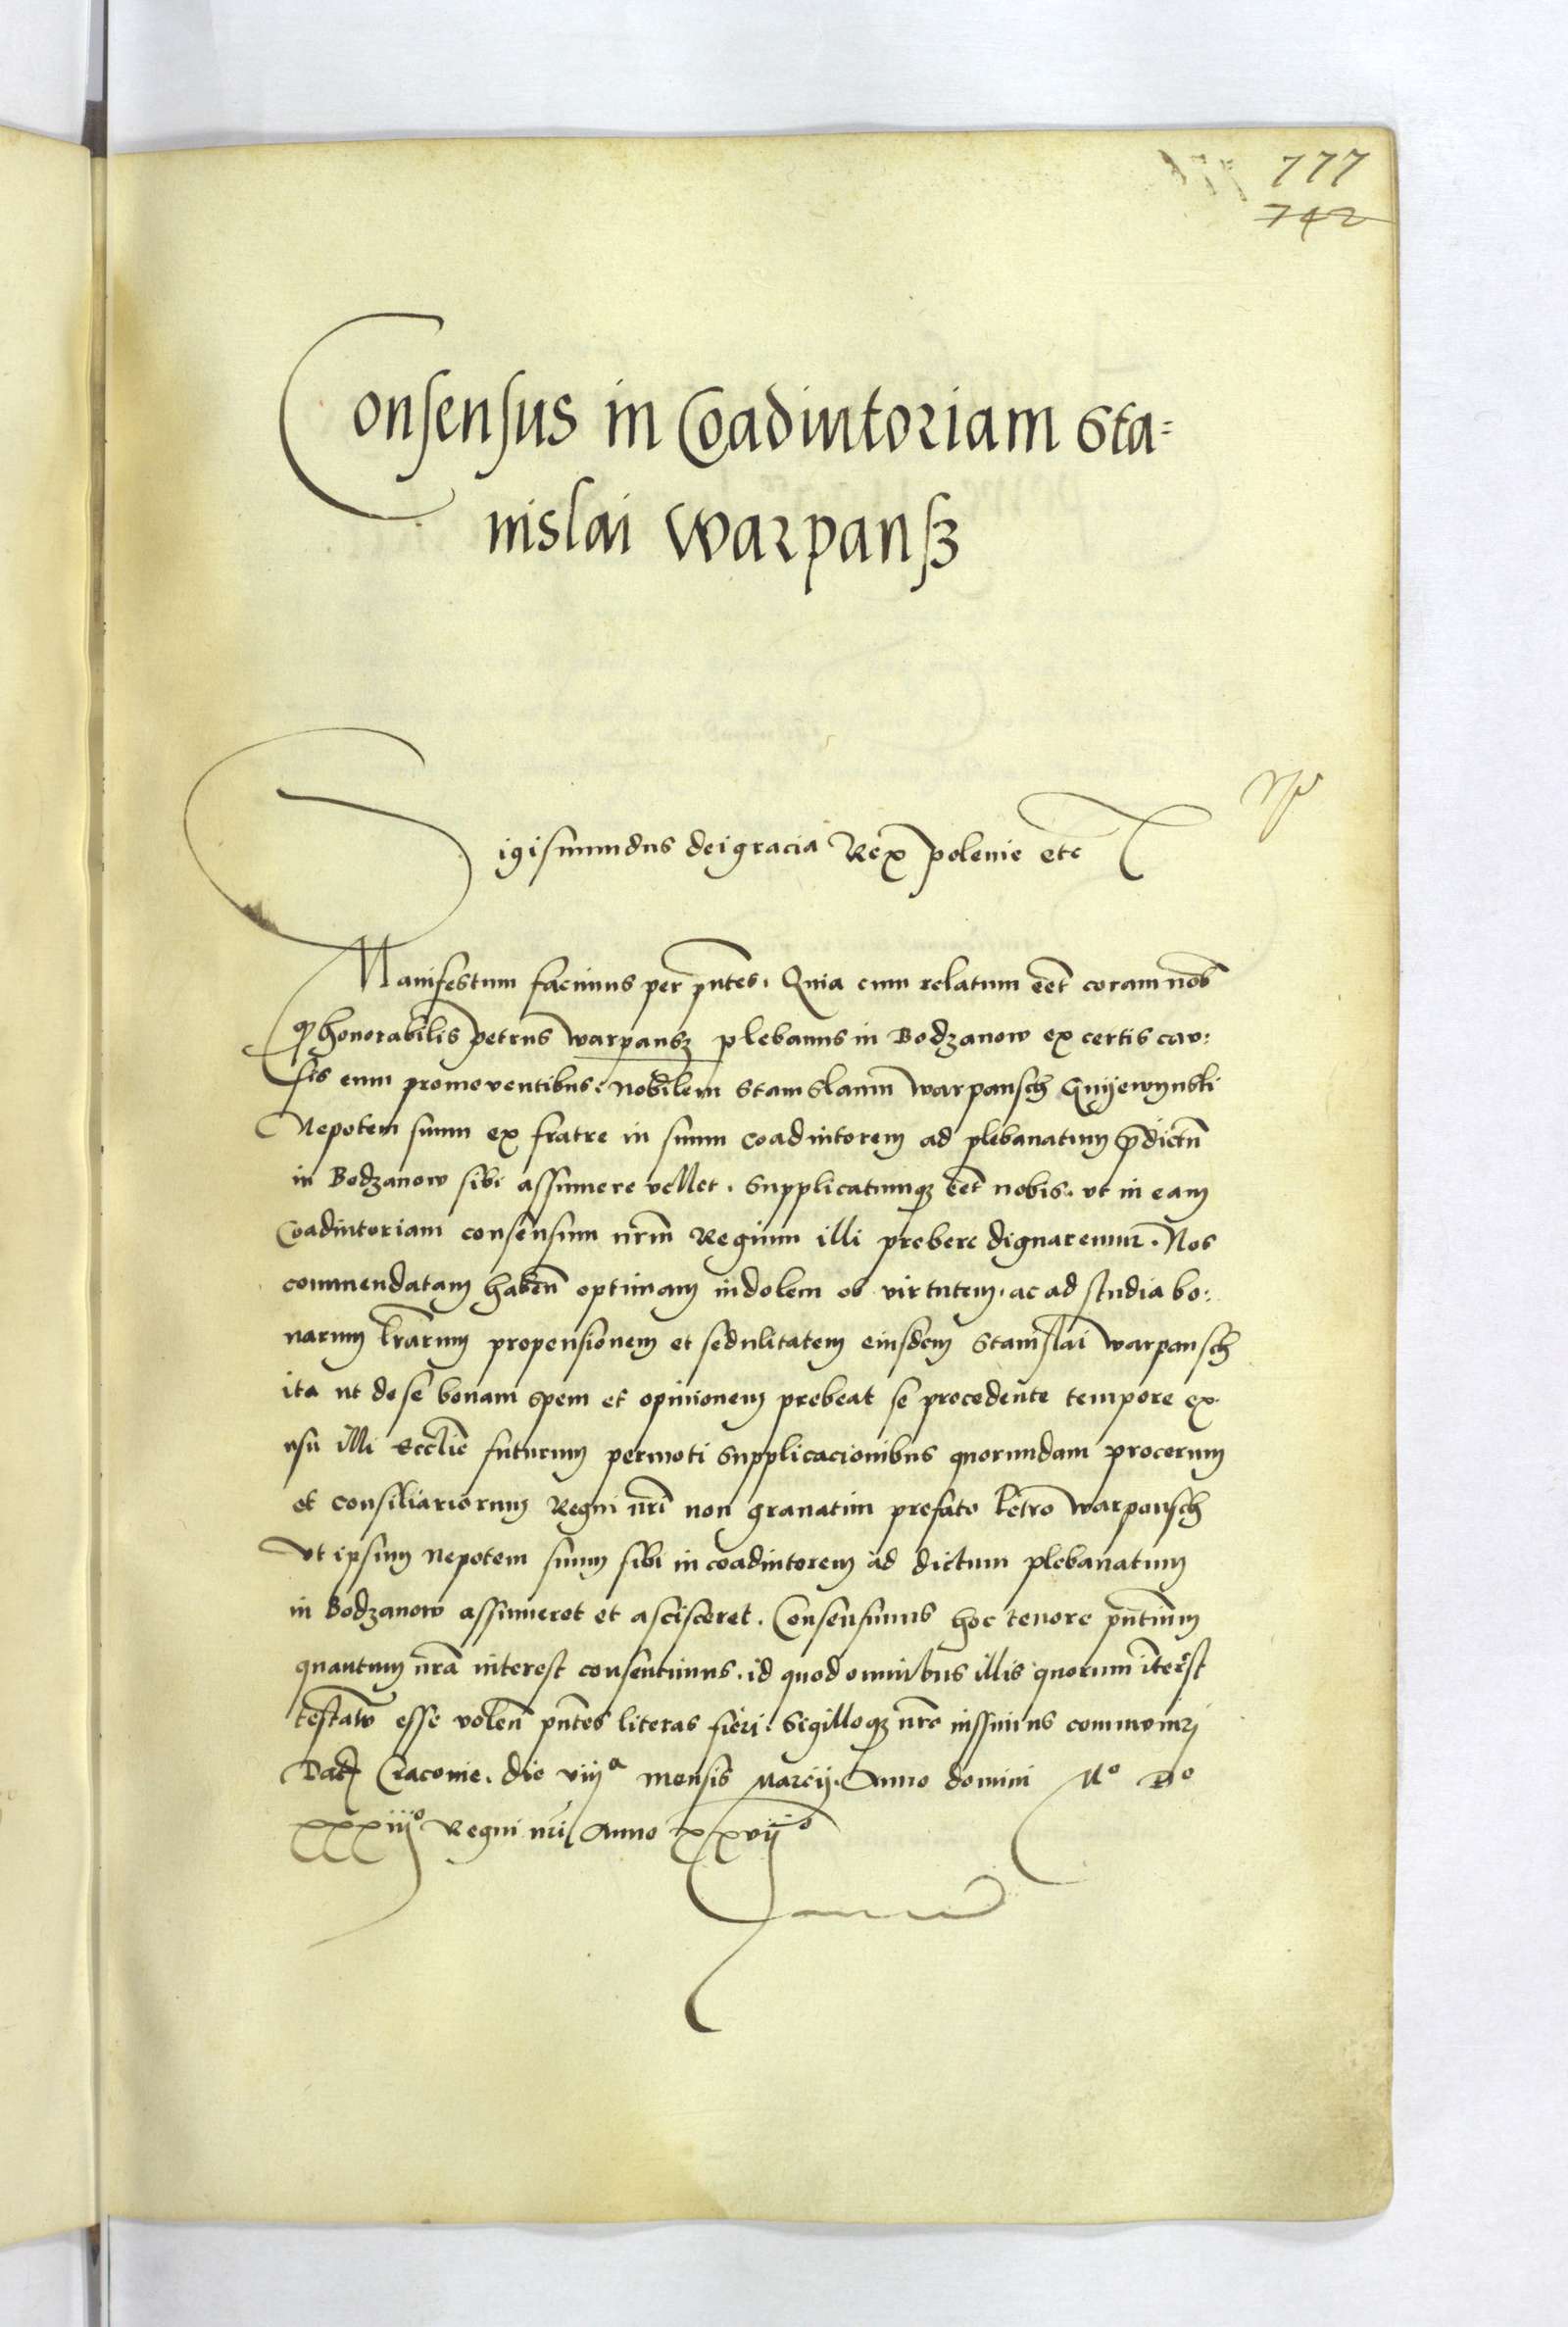 777
742
Consensus in Coadiutoriam Sta=
nislai Warpansz
Sigismundus dei gracia Rex polonie etc
Manifestum facimus per pntes. Quia cum relatum eet coram nob
q honorabilis petrus warpansz plebanus in Bodzanow ex certis cau:
sis eum promoventibus: nobilem Stanislaum warpansch Gnyewynski
Nepotem suum ex fratre in suum coadiutorem ad plebanatum pdictu
in Bodzanow sibi assumere vellet. Supplicatumqz eet nobis. vt in eam
Coadiutoriam consensum nrm Regium illi prebere dignaremur. Nos
commendatam haben optimam indolem ob virtutem. ac ad studia bo:
narum lrarum propensionem et sedulitatem eiusdem Stanislai warpansch
ita ut de se bonam spem et opinionem prebeat se procedente tempore ex
usu illi Ecclie futurum permoti supplicacionibus quorundam procerum
et consiliariorum Regni nri non gravatim prefato Petro warpansch
Vt ipsum Nepotem suum sibi in coadiutorem ad dictum plebanatum
in Bodzanow assumeret et ascisceret. Consensimus hoc tenore pntium
quantum nra interest consentimus. id quod omnibus illis quorum iterest
testatu esse volen pntes literas fieri. Sigilloqz nro iussimus communiri
Dat Cracovie. die viija mensis Marcij. Anno domini Mo Do
xxxiijo Regni nri Anno xxvijo